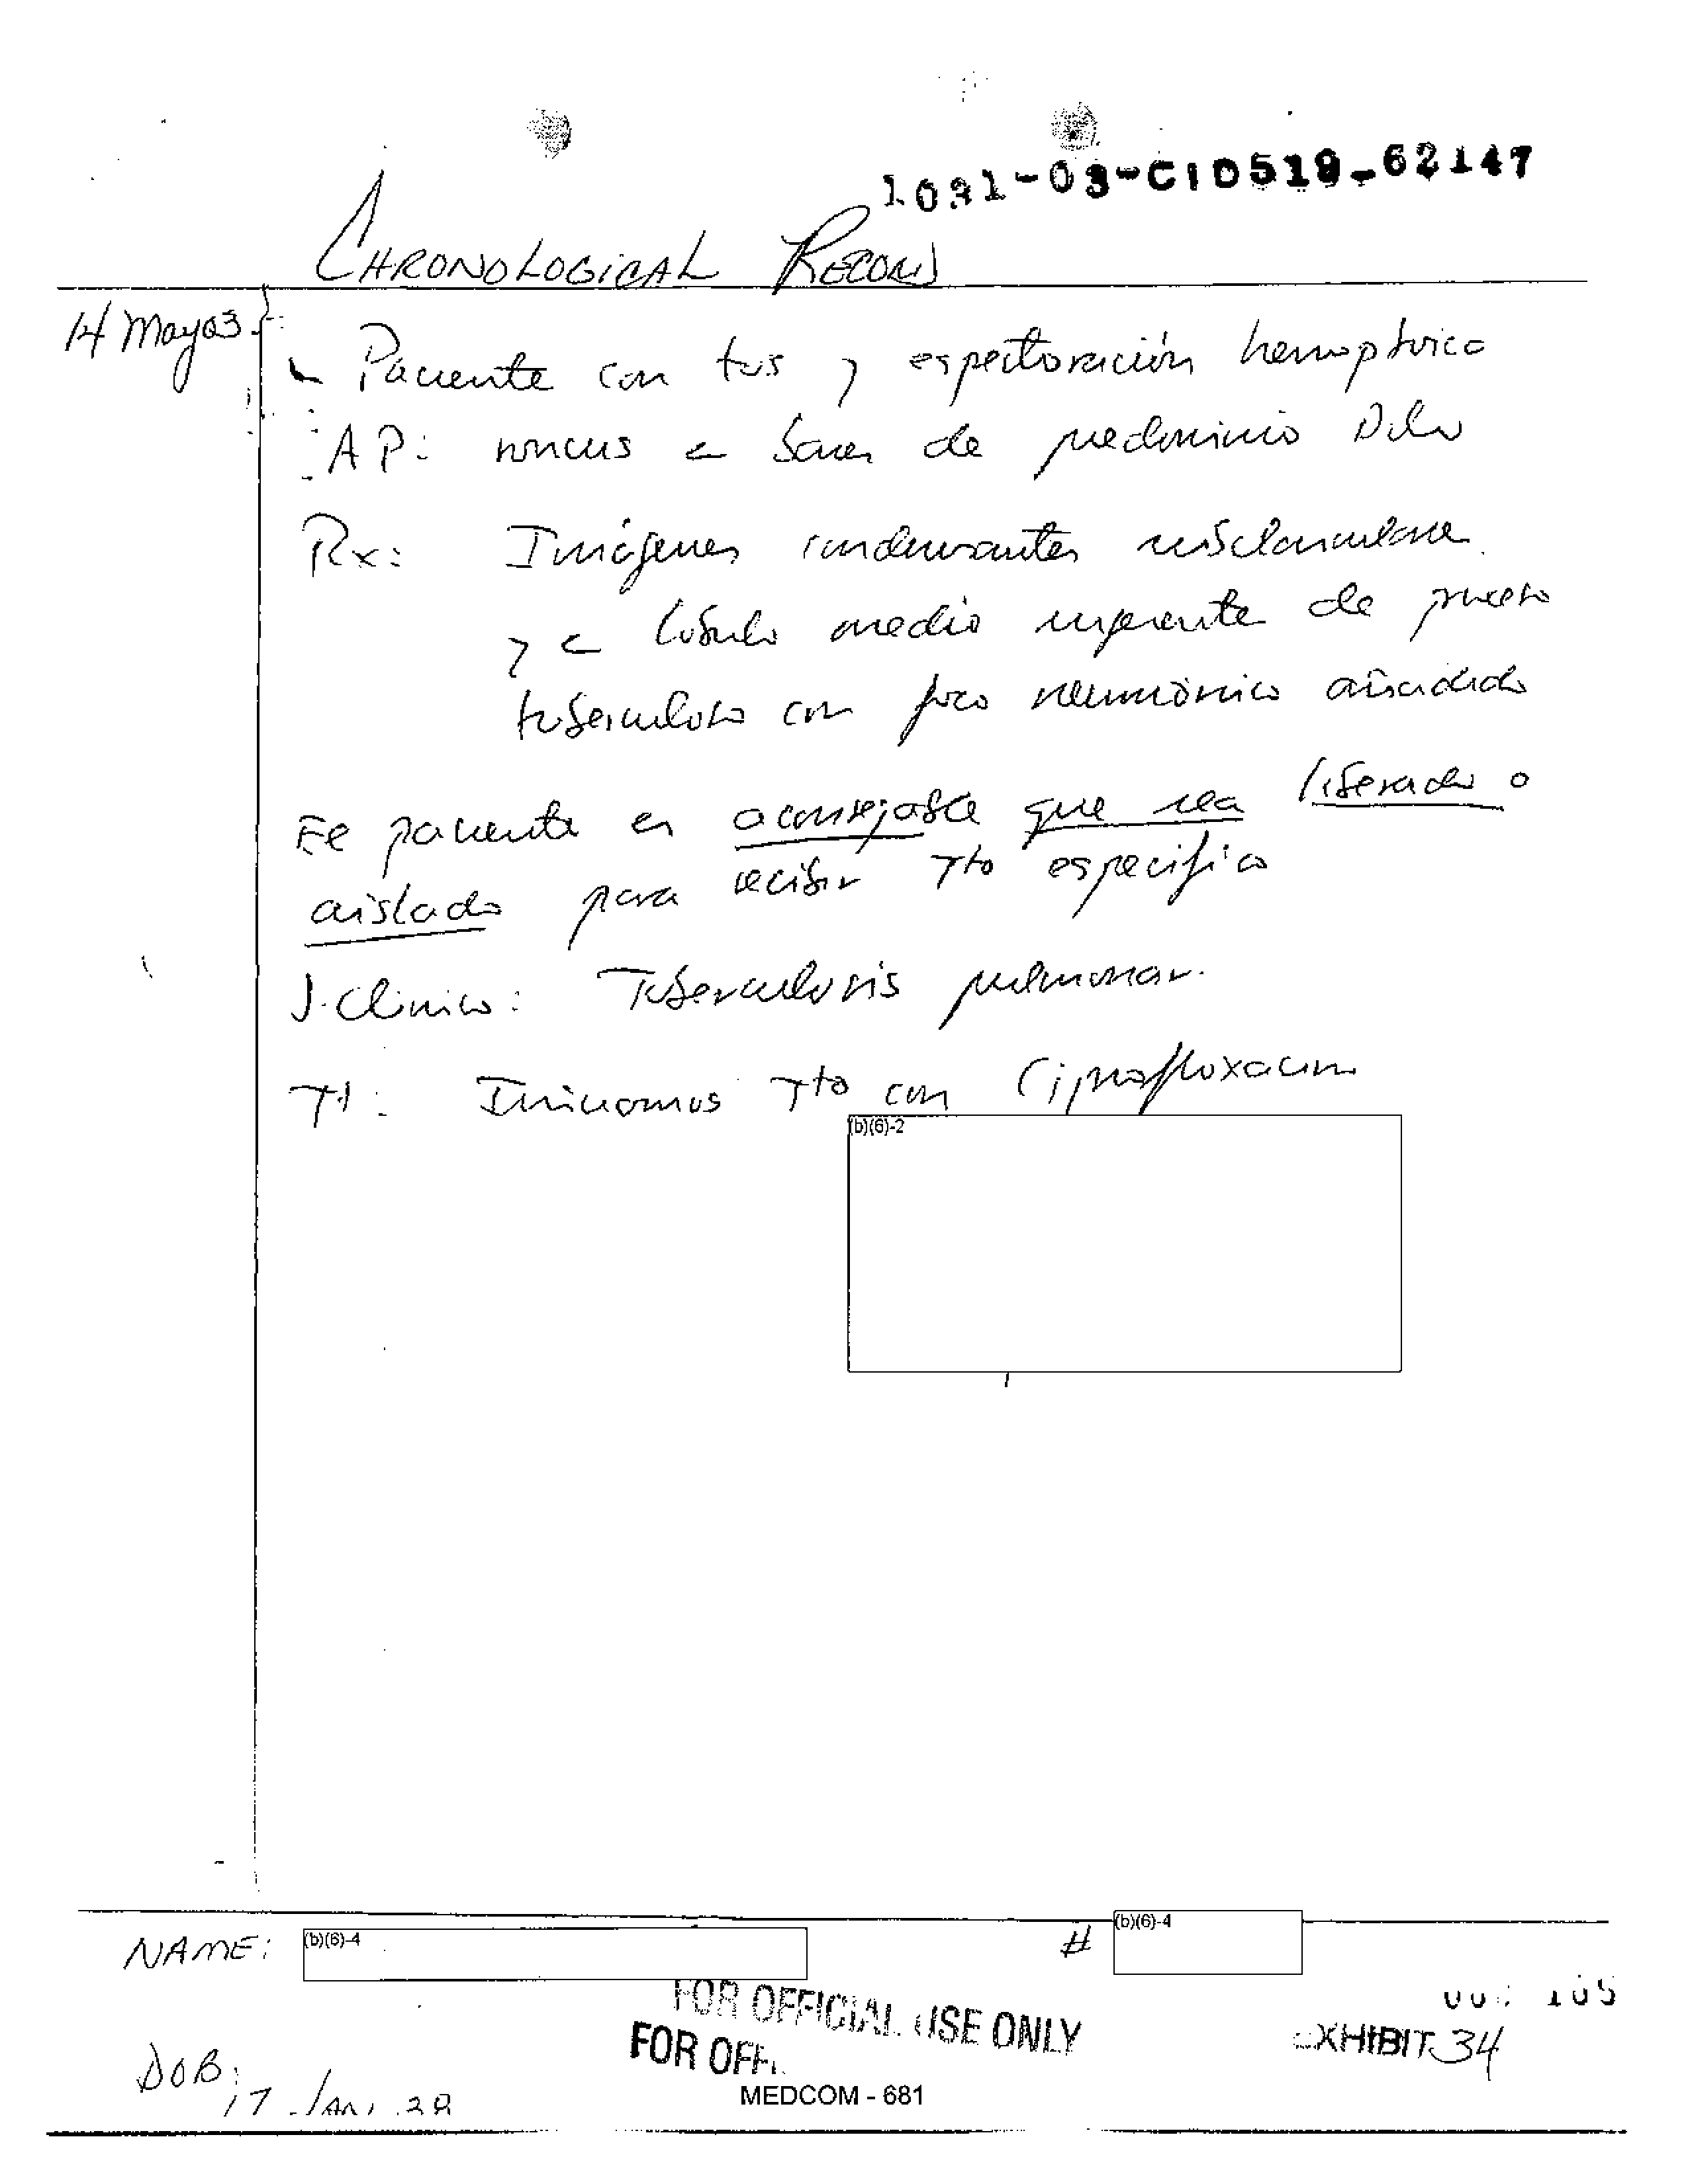 -03-CID519-62147
CHRONOLOGICAL RECORD
14 May 03
Paciente con tos y espectoración hemoptoica
AP: roncus en bases de predominio Dcho
Rx: Imágenes condensantes
y en lóbulo medio sugerente de proceso
tuberculoso con foco neumónico añadido
El paciente es aconsejable que sea liberado o
aislado para recibir Tto especifico
J. Clinico: Tuberculosis pulmonar.
Tt: Iniciamos Tto con Ciprofloxacino
(b)(6)-2
NAME: (b)(6)-4 # (b)(6)-4
FOR OFFICIAL USE ONLY
FOR OFFI
EXHIBIT 34
DOB: 17 JAN 28
MEDCOM - 681